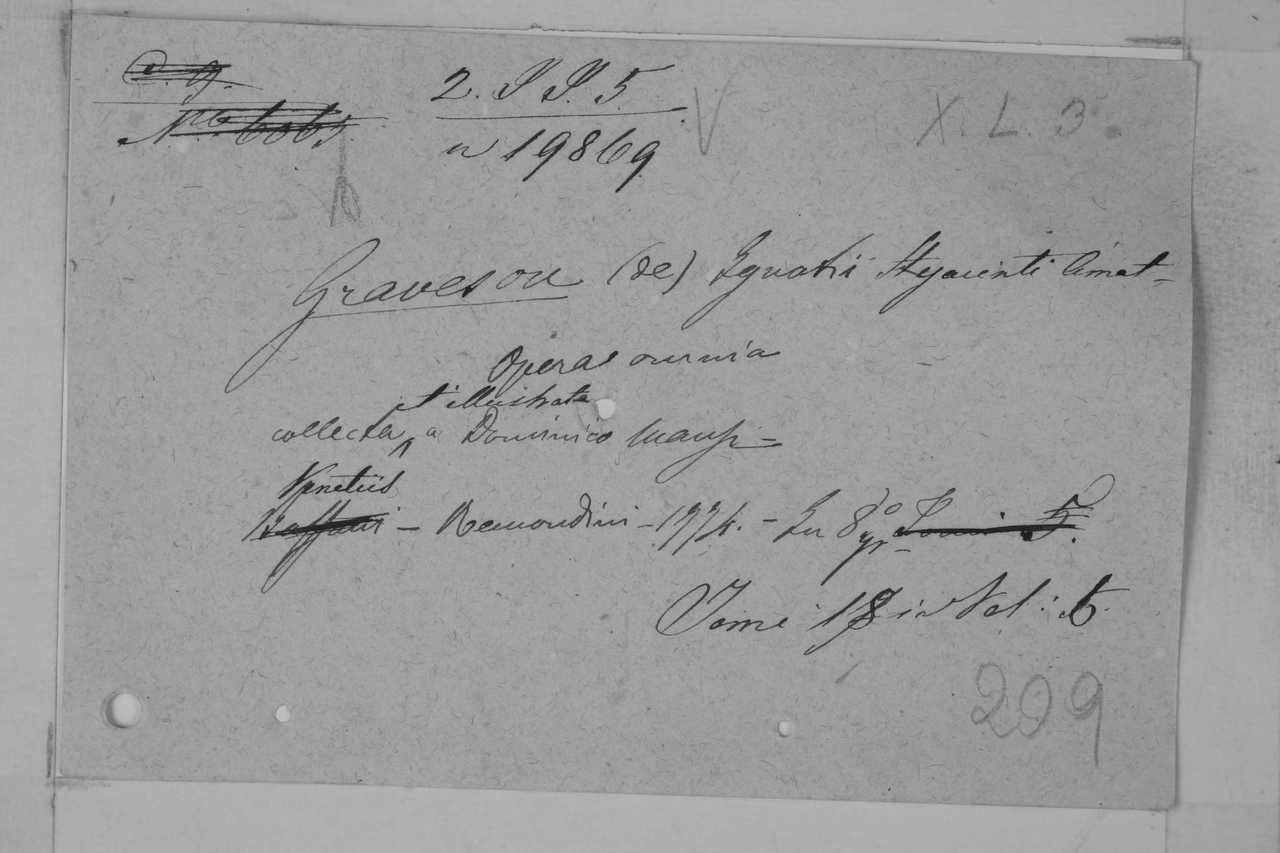 C. 9.
N.ro 6065
2. P P. 5.
n 19869
V
X. L. 3.
Graveson (de) Ignatii Hyacinti Amat-
Opera omnia
et illustrata
collecta a Dominico Mansi -
Venetiis
- Remondini - 1774. - In 8vo Tomi 5.
Tomi 18 in Vol: 6.
209